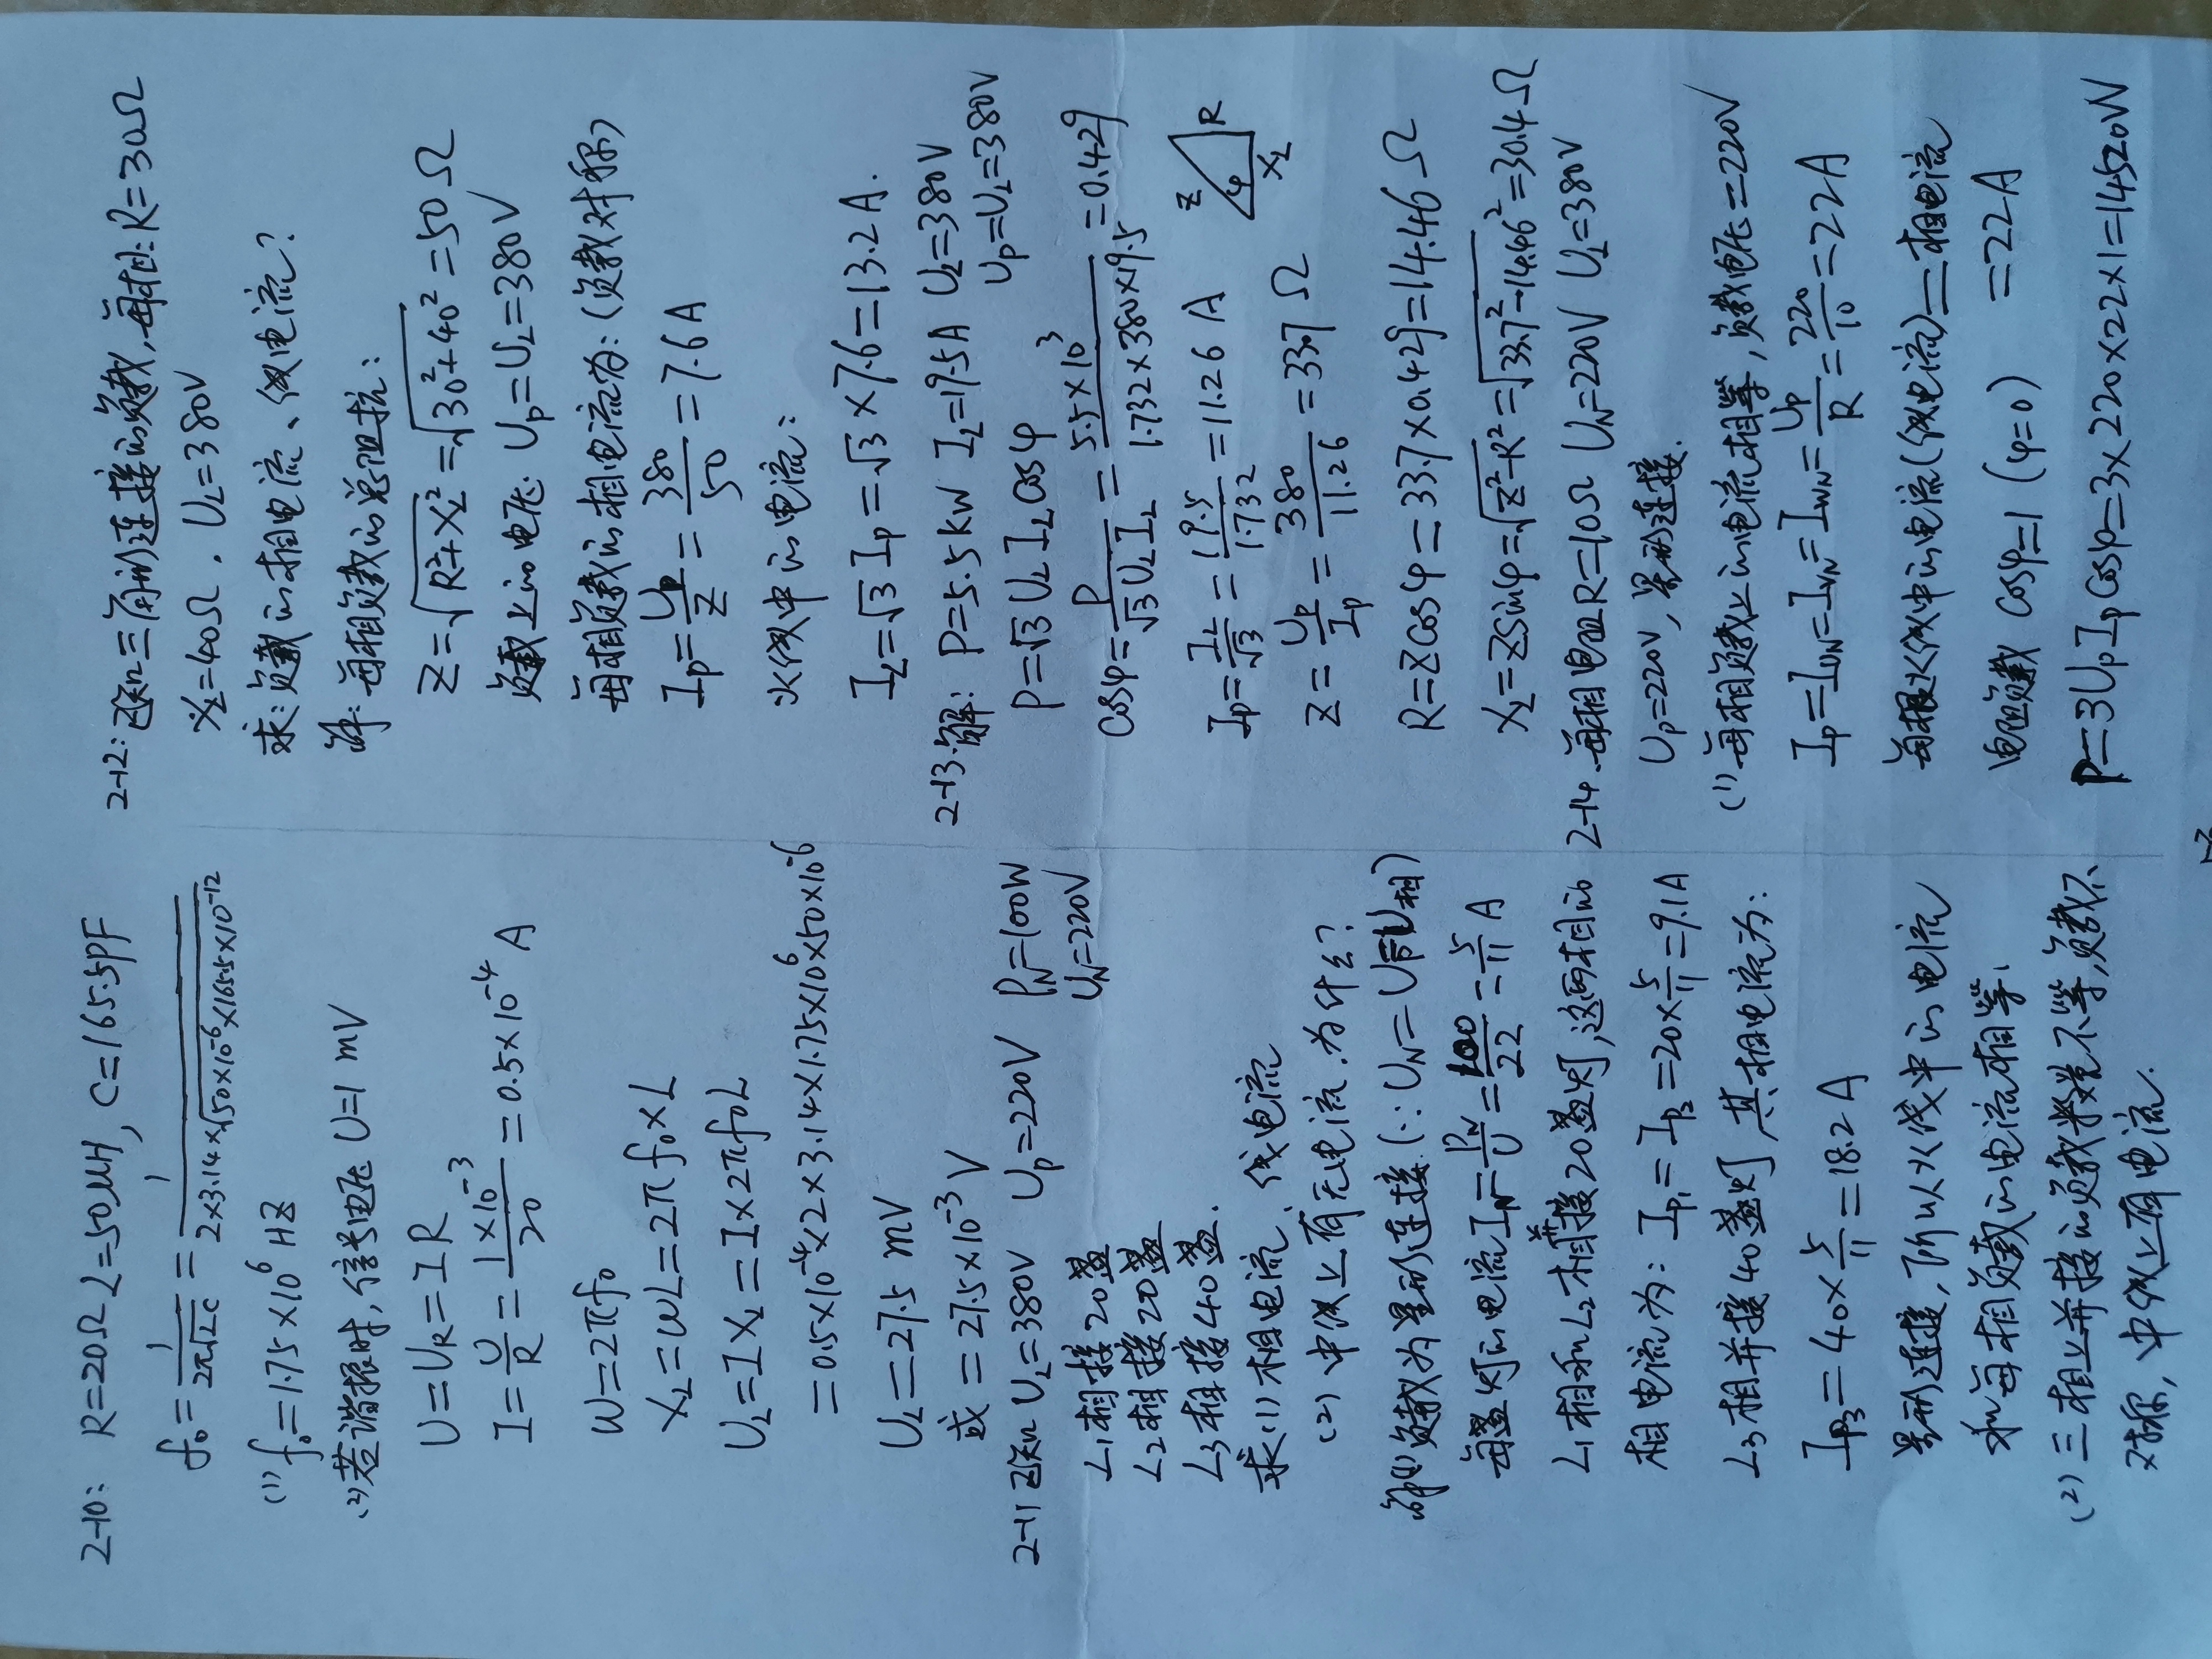 2-10: R=20Ω L=50μH, C=165.5PF
f₀=1/(2π√LC)=1/(2×3.14×√(50×10⁻⁶×165.5×10⁻¹²))
(1) f₀=1.75×10⁶HZ
(2)若谐振时,信号电压U=1mV
U=U_R=IR
I=U/R=(1×10⁻³)/20=0.5×10⁻⁴A
W=2πf₀
X_L=WL=2πf₀×L
U_L=IX_L=I×2πf₀L
=0.5×10⁻⁴×2×3.14×1.75×10⁶×50×10⁻⁶
U_L=27.5mV
或=27.5×10⁻³V
2-11已知U_L=380V U_P=220V P_N=100W
U_N=220V
L₁相接20盏
L₂相接20盏
L₃相接40盏.
求(1)相电流、线电流
(2)中线上有无电流.为什么?
解(1)负载为星形连接.(∵U_N=U相)
每盏灯的电流I_N=P_N/U=100/22=5/11A
L₁相和L₂相并接20盏灯,这两相的
相电流为:I_P₁=I_P₂=20×5/11=9.1A
L₃相并接40盏灯,其相电流为:
I_P₃=40×5/11=18.2A
星形连接,所以火线中的电流
和每相负载的电流相等.
(2)三相上并接的负载数不等,负载不
对称,中线上有电流.
2-12:已知三角形连接的负载,每相:R=30Ω
X_L=40Ω.U_L=380V
求:负载的相电流、线电流?
解:每相负载的总阻抗:
Z=√(R²+X_L²)=√(30²+40²)=50Ω
负载上的电压U_P=U_L=380V
每相负载的相电流为:(负载对称)
I_P=U_P/Z=380/50=7.6A
火线中的电流:
I_L=√3I_P=√3×7.6=13.2A.
2-13.解:P=5.5KW I_L=19.5A U_L=380V
U_P=U_L=380V
P=√3U_LI_LCOSφ
COSφ=P/(√3U_LI_L)=(5.5×10³)/(1.732×380×19.5)=0.429
Z R
φ X_L
I_P=I_L/√3=19.5/1.732=11.26A
Z=U_P/I_P=380/11.26=33.7Ω
R=ZCOSφ=33.7×0.429=14.46Ω
X_L=ZSinφ=√(Z²-R²)=√(33.7²-14.46²)=30.4Ω
2-14.每相电阻R=10Ω U_N=220V U_L=380V
U_P=220V,星形连接.
(1)每相负载上的电流相等,负载电压=220V
I_P=I_UN=I_VN=I_WN=U_P/R=220/10=22A
每根火线中的电流(线电流)=相电流
=22A
电阻负载 COSφ=1(φ=0)
P=3U_PI_PCOSφ=3×220×22×1=14520W